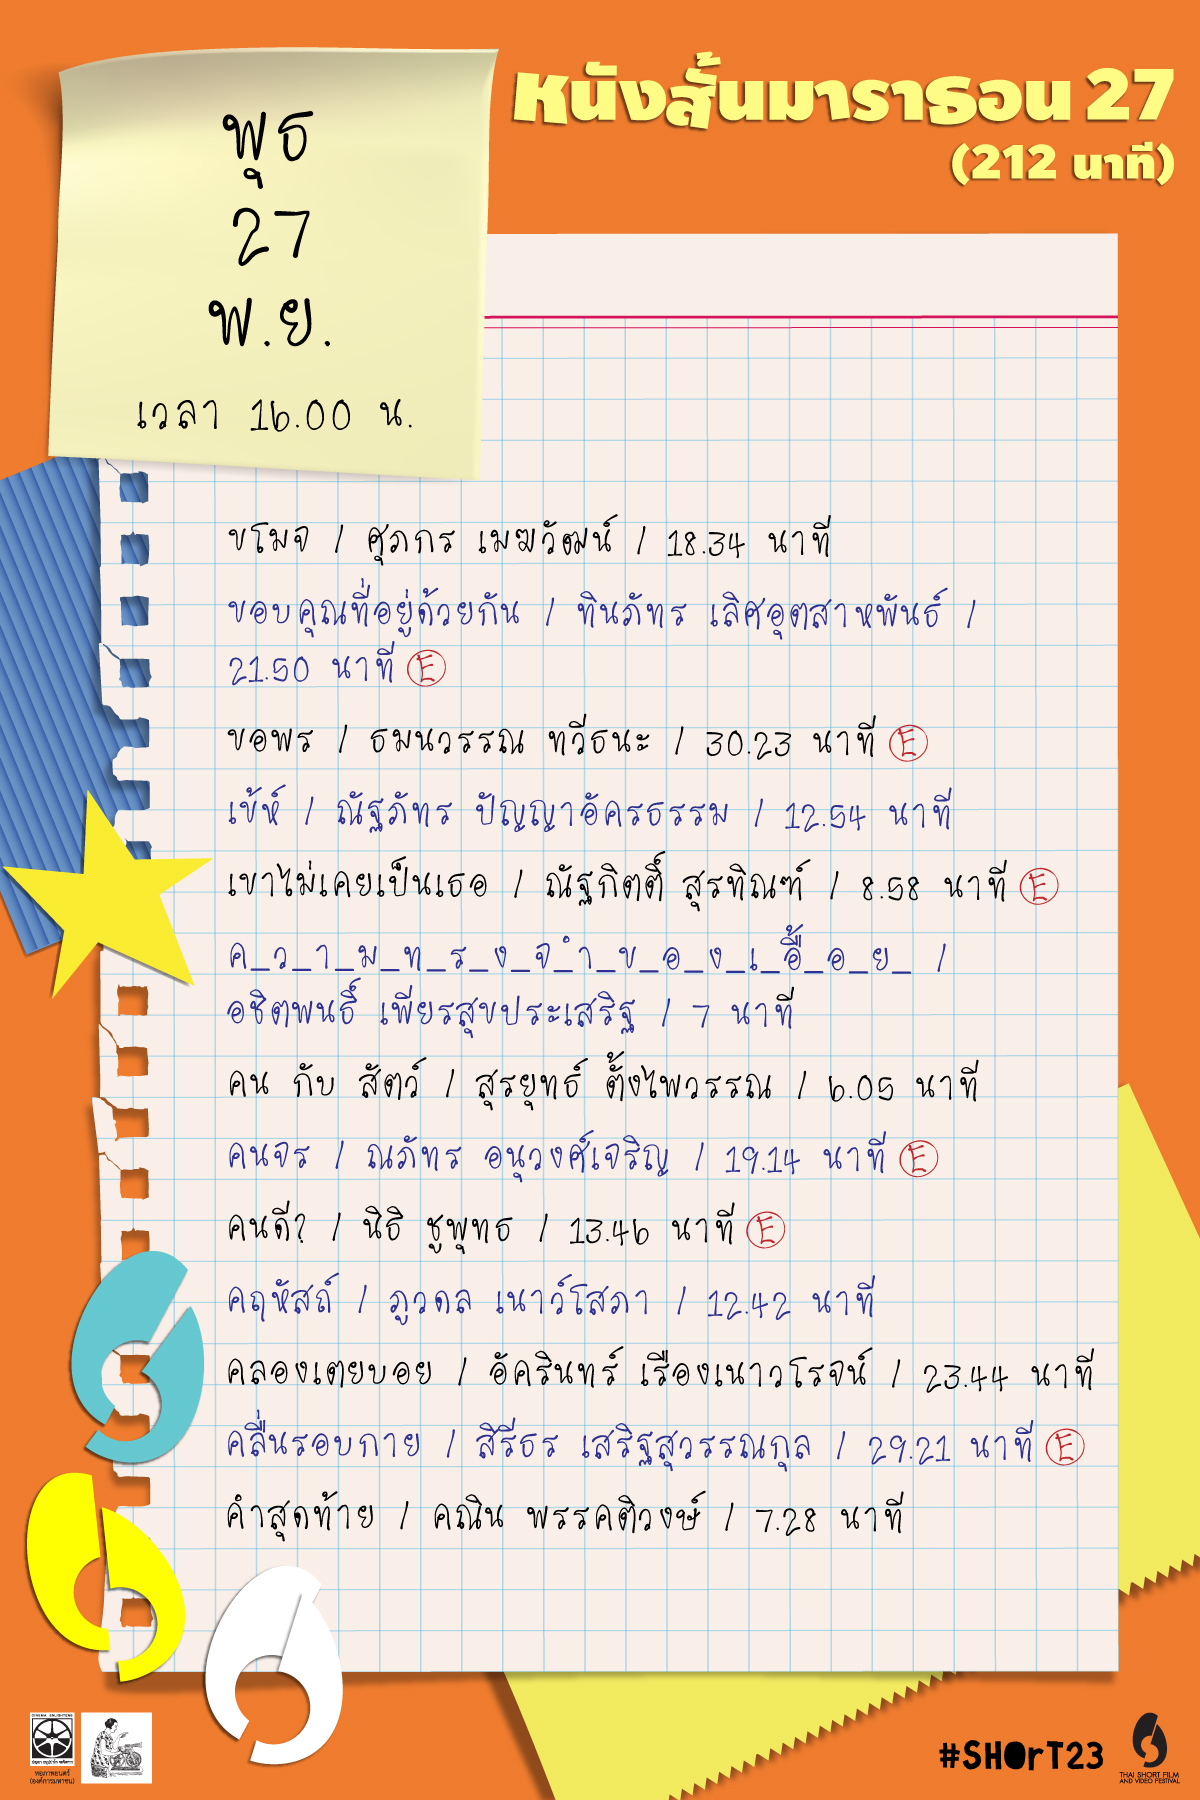 หนังสั้นมาราธอน 27
(212 นาที)
พุธ
27
พ.ย.
เวลา 16.00 น.
ขโมจ / ศุภกร เมฆวัฒน์ / 18.34 นาที
ขอบคุณที่อยู่ด้วยกัน / ทินภัทร เลิศอุตสาหพันธ์ /
21.50 นาที E
ขอพร / ธมนวรรณ ทวีธนะ / 30.23 นาที E
เข้ห์ / ณัฐภัทร ปัญญาอัครธรรม / 12.54 นาที
เขาไม่เคยเป็นเธอ / ณัฐกิตติ์ สุรทิณฑ์ / 8.58 นาที E
ค_ว_า_ม_ท_ร_ง_จ_ำ_ข_อ_ง_เ_อื้_อ_ย_ /
อชิตพนธิ์ เพียรสุขประเสริฐ / 7 นาที
คน กับ สัตว์ / สุรยุทธ์ ตั้งไพวรรณ / 6.05 นาที
คนจร / ณภัทร อนุวงศ์เจริญ / 19.14 นาที E
คนดี? / นิธิ ชูพุทธ / 13.46 นาที E
คฤหัสถ์ / ภูวดล เนาว์โสภา / 12.42 นาที
คลองเตยบอย / อัครินทร์ เรืองเนาวโรจน์ / 23.44 นาที
คลื่นรอบกาย / สิรีธร เสริฐสุวรรณกุล / 29.21 นาที E
คำสุดท้าย / คณิน พรรคติวงษ์ / 7.28 นาที
หอภาพยนตร์
(องค์การมหาชน)
#SHOrT23
THAI SHORT FILM
AND VIDEO FESTIVAL